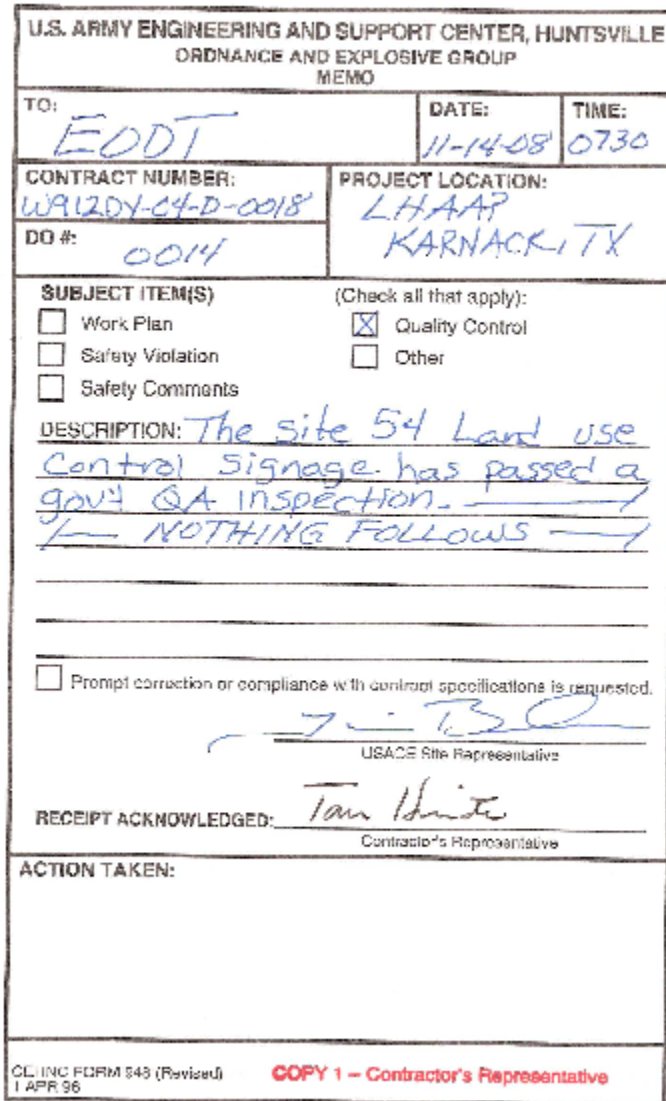 U.S. ARMY ENGINEERING AND SUPPORT CENTER, HUNTSVILLE
ORDNANCE AND EXPLOSIVE GROUP
MEMO
TO: EODT
DATE: 11-14-08
TIME: 0730
CONTRACT NUMBER: W912DY-04-D-0018
PROJECT LOCATION: LHAAP
KARNACK, TX
DO #: 0014
SUBJECT ITEM(S) (Check all that apply):
Work Plan
Safety Violation
Safety Comments
Quality Control
Other
DESCRIPTION: The Site 54 Land use
Control Signage has passed a
gov't QA inspection.
NOTHING FOLLOWS
Prompt correction or compliance with contract specifications is requested.
USACE Site Representative
RECEIPT ACKNOWLEDGED:
Contractor's Representative
ACTION TAKEN:
CEHNC FORM 948 (Revised)
1 APR 96
COPY 1 – Contractor's Representative